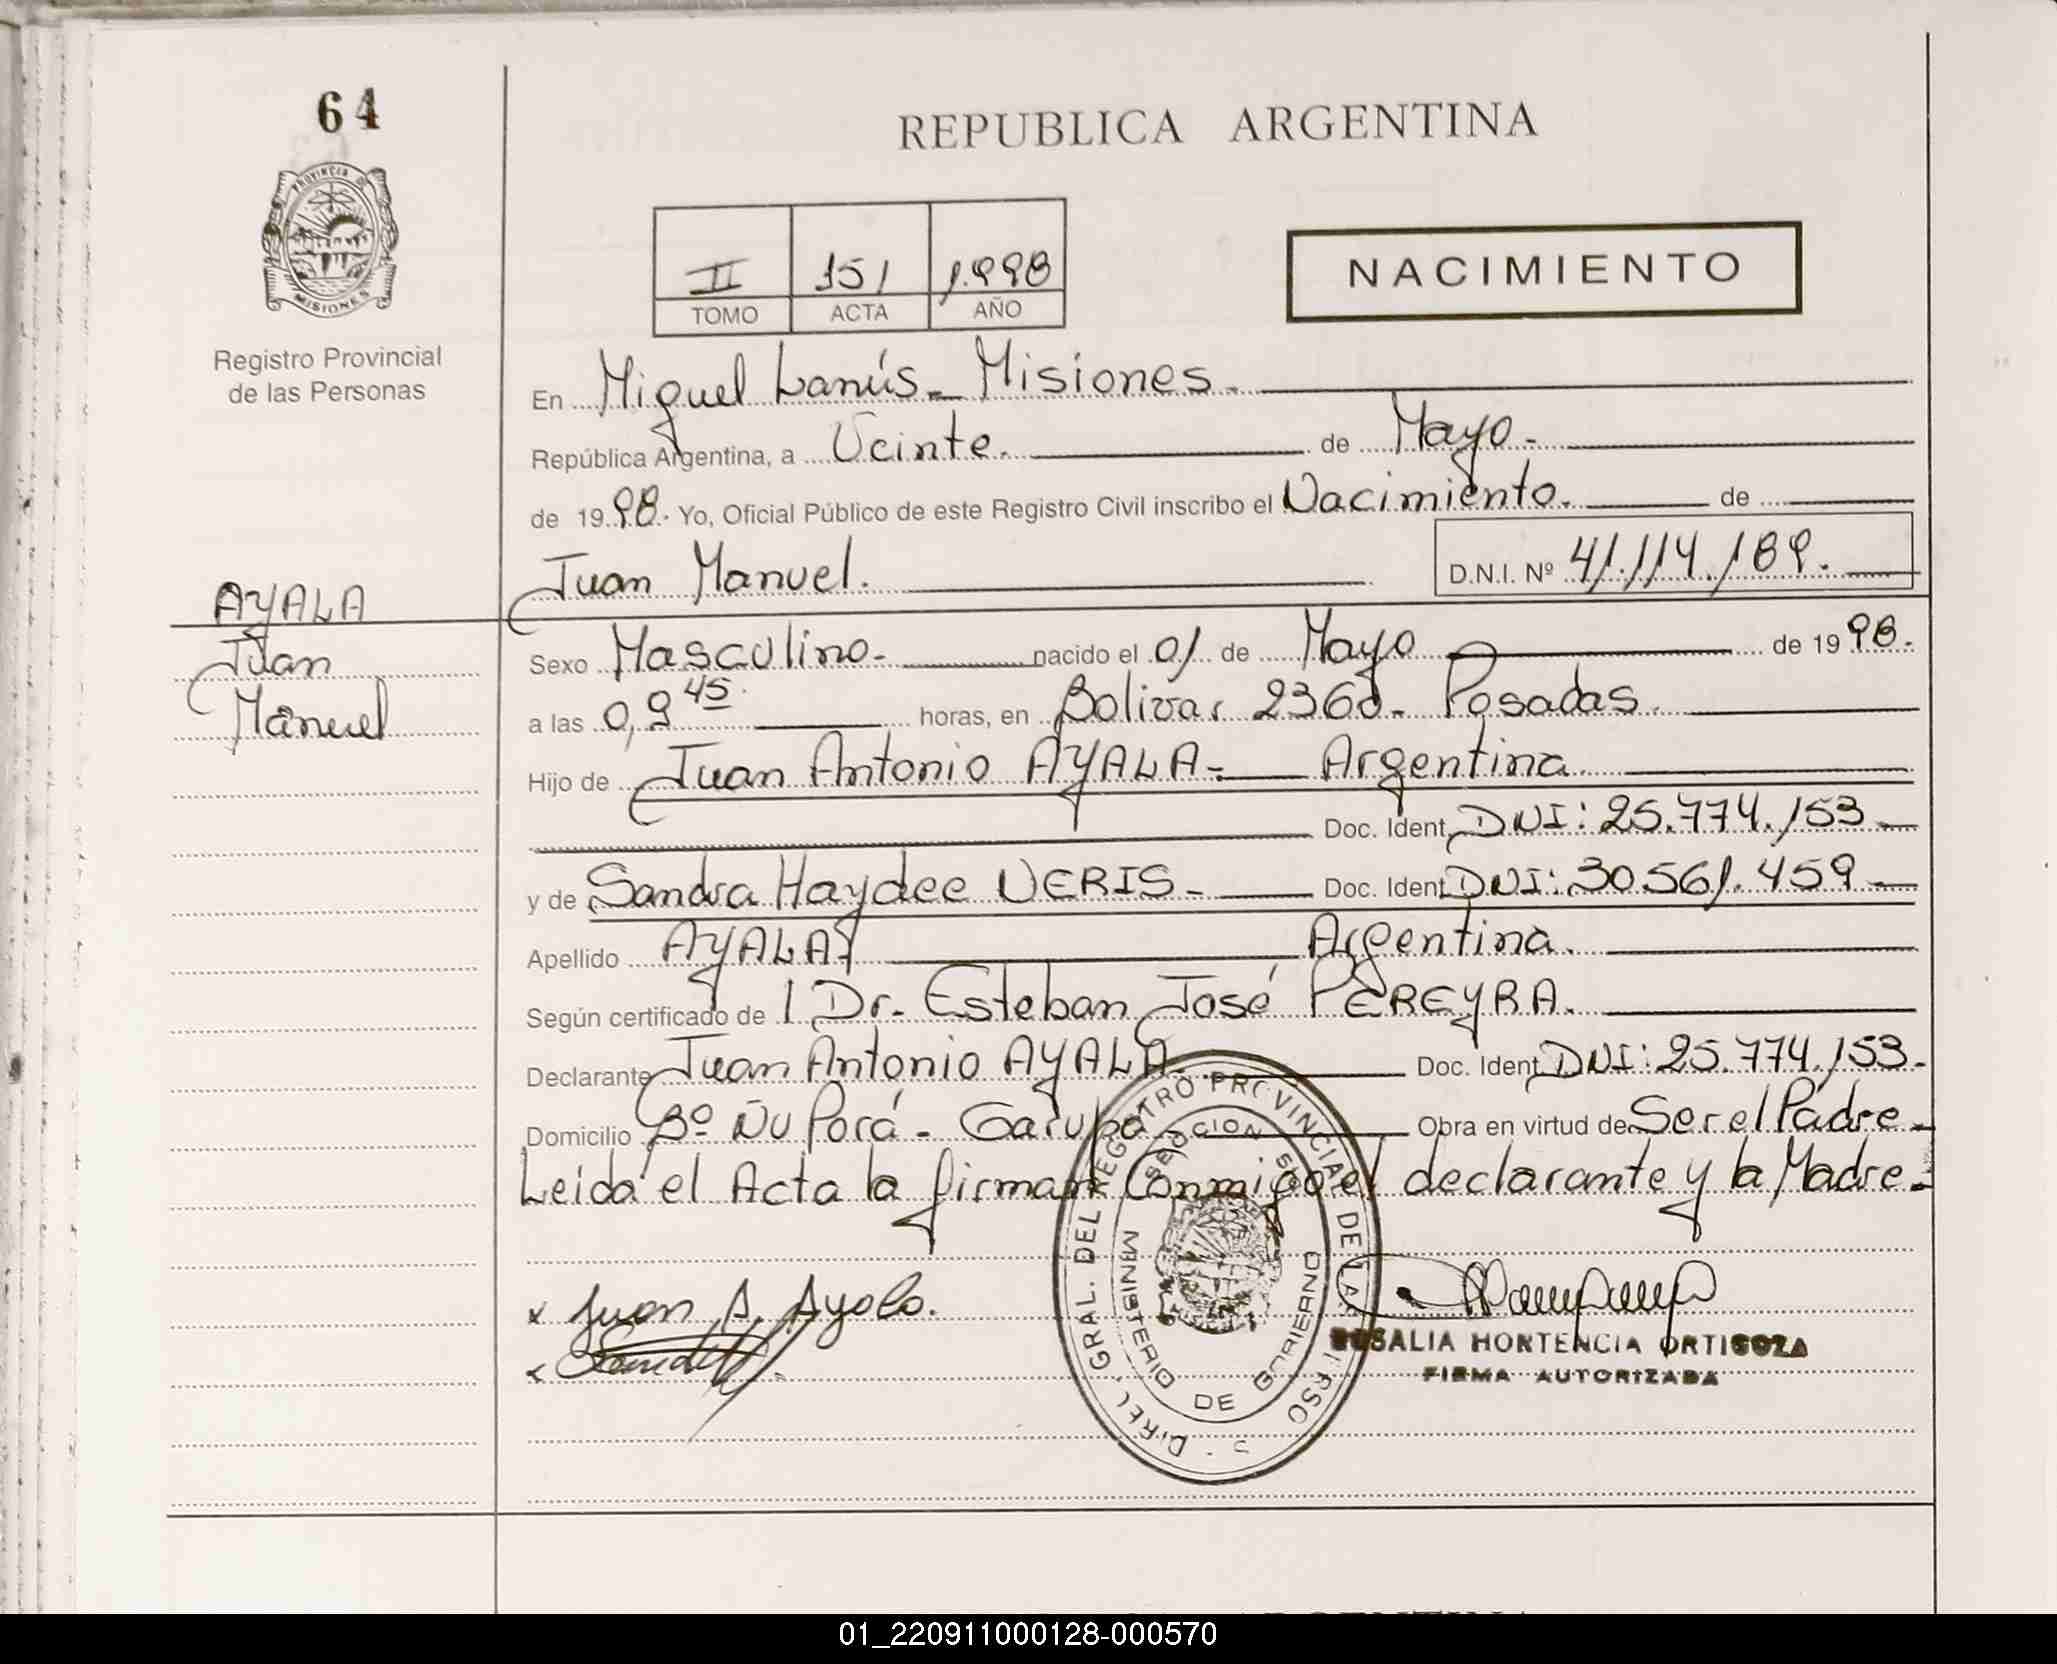 64
REPUBLICA ARGENTINA
PROVINCIA DE
MISIONES
Registro Provincial
de las Personas
II 151 1.998
TOMO ACTA AÑO
NACIMIENTO
En Miguel Lanús - Misiones.
República Argentina, a Veinte. de Mayo.
de 1998. Yo, Oficial Público de este Registro Civil inscribo el Nacimiento. de
Juan Manuel. D.N.I. Nº 41.114.189.
AYALA
Juan
Manuel
Sexo Masculino. nacido el 01 de Mayo de 1998.
a las 0,9 45 horas, en Bolivar 2360. Posadas.
Hijo de Juan Antonio AYALA - Argentina
Doc. Ident. DNI: 25.774.153
y de Sandra Haydee NERIS - Doc. Ident. DNI: 30.561.459
Apellido AYALA Argentina.
Según certificado de l Dr. Esteban José PEREYRA.
Declarante Juan Antonio AYALA. Doc. Ident. DNI: 25.774.153.
Domicilio Bº Ñu Porá - Garupá Obra en virtud de Ser el Padre
Leida el Acta la firman Conmigo el declarante y la Madre.
x Juan A. Ayala.
x
ROSALIA HORTENCIA ORTIGOZA
FIRMA AUTORIZADA
MINISTERIO DE GOBIERNO
01_220911000128-000570